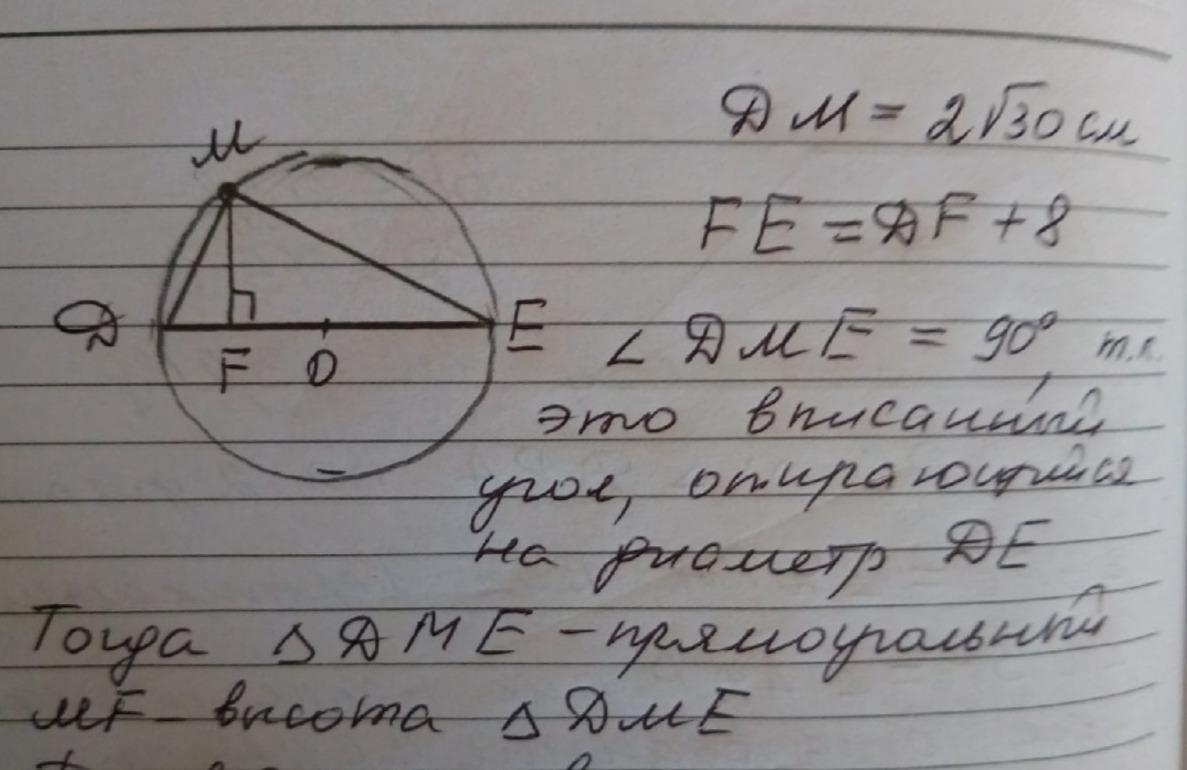 M
D
E
F O
DM = 2√30 см
FE = DF + 8
∠ DME = 90°, т.к.
это вписанный
угол, опирающийся
на диаметр DE
Тогда △ DME – прямоугольный
MF – высота △ DME